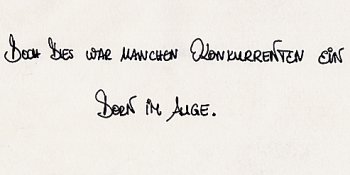 Doch dies war manchen Konkurrenten ein
Dorn im Auge.